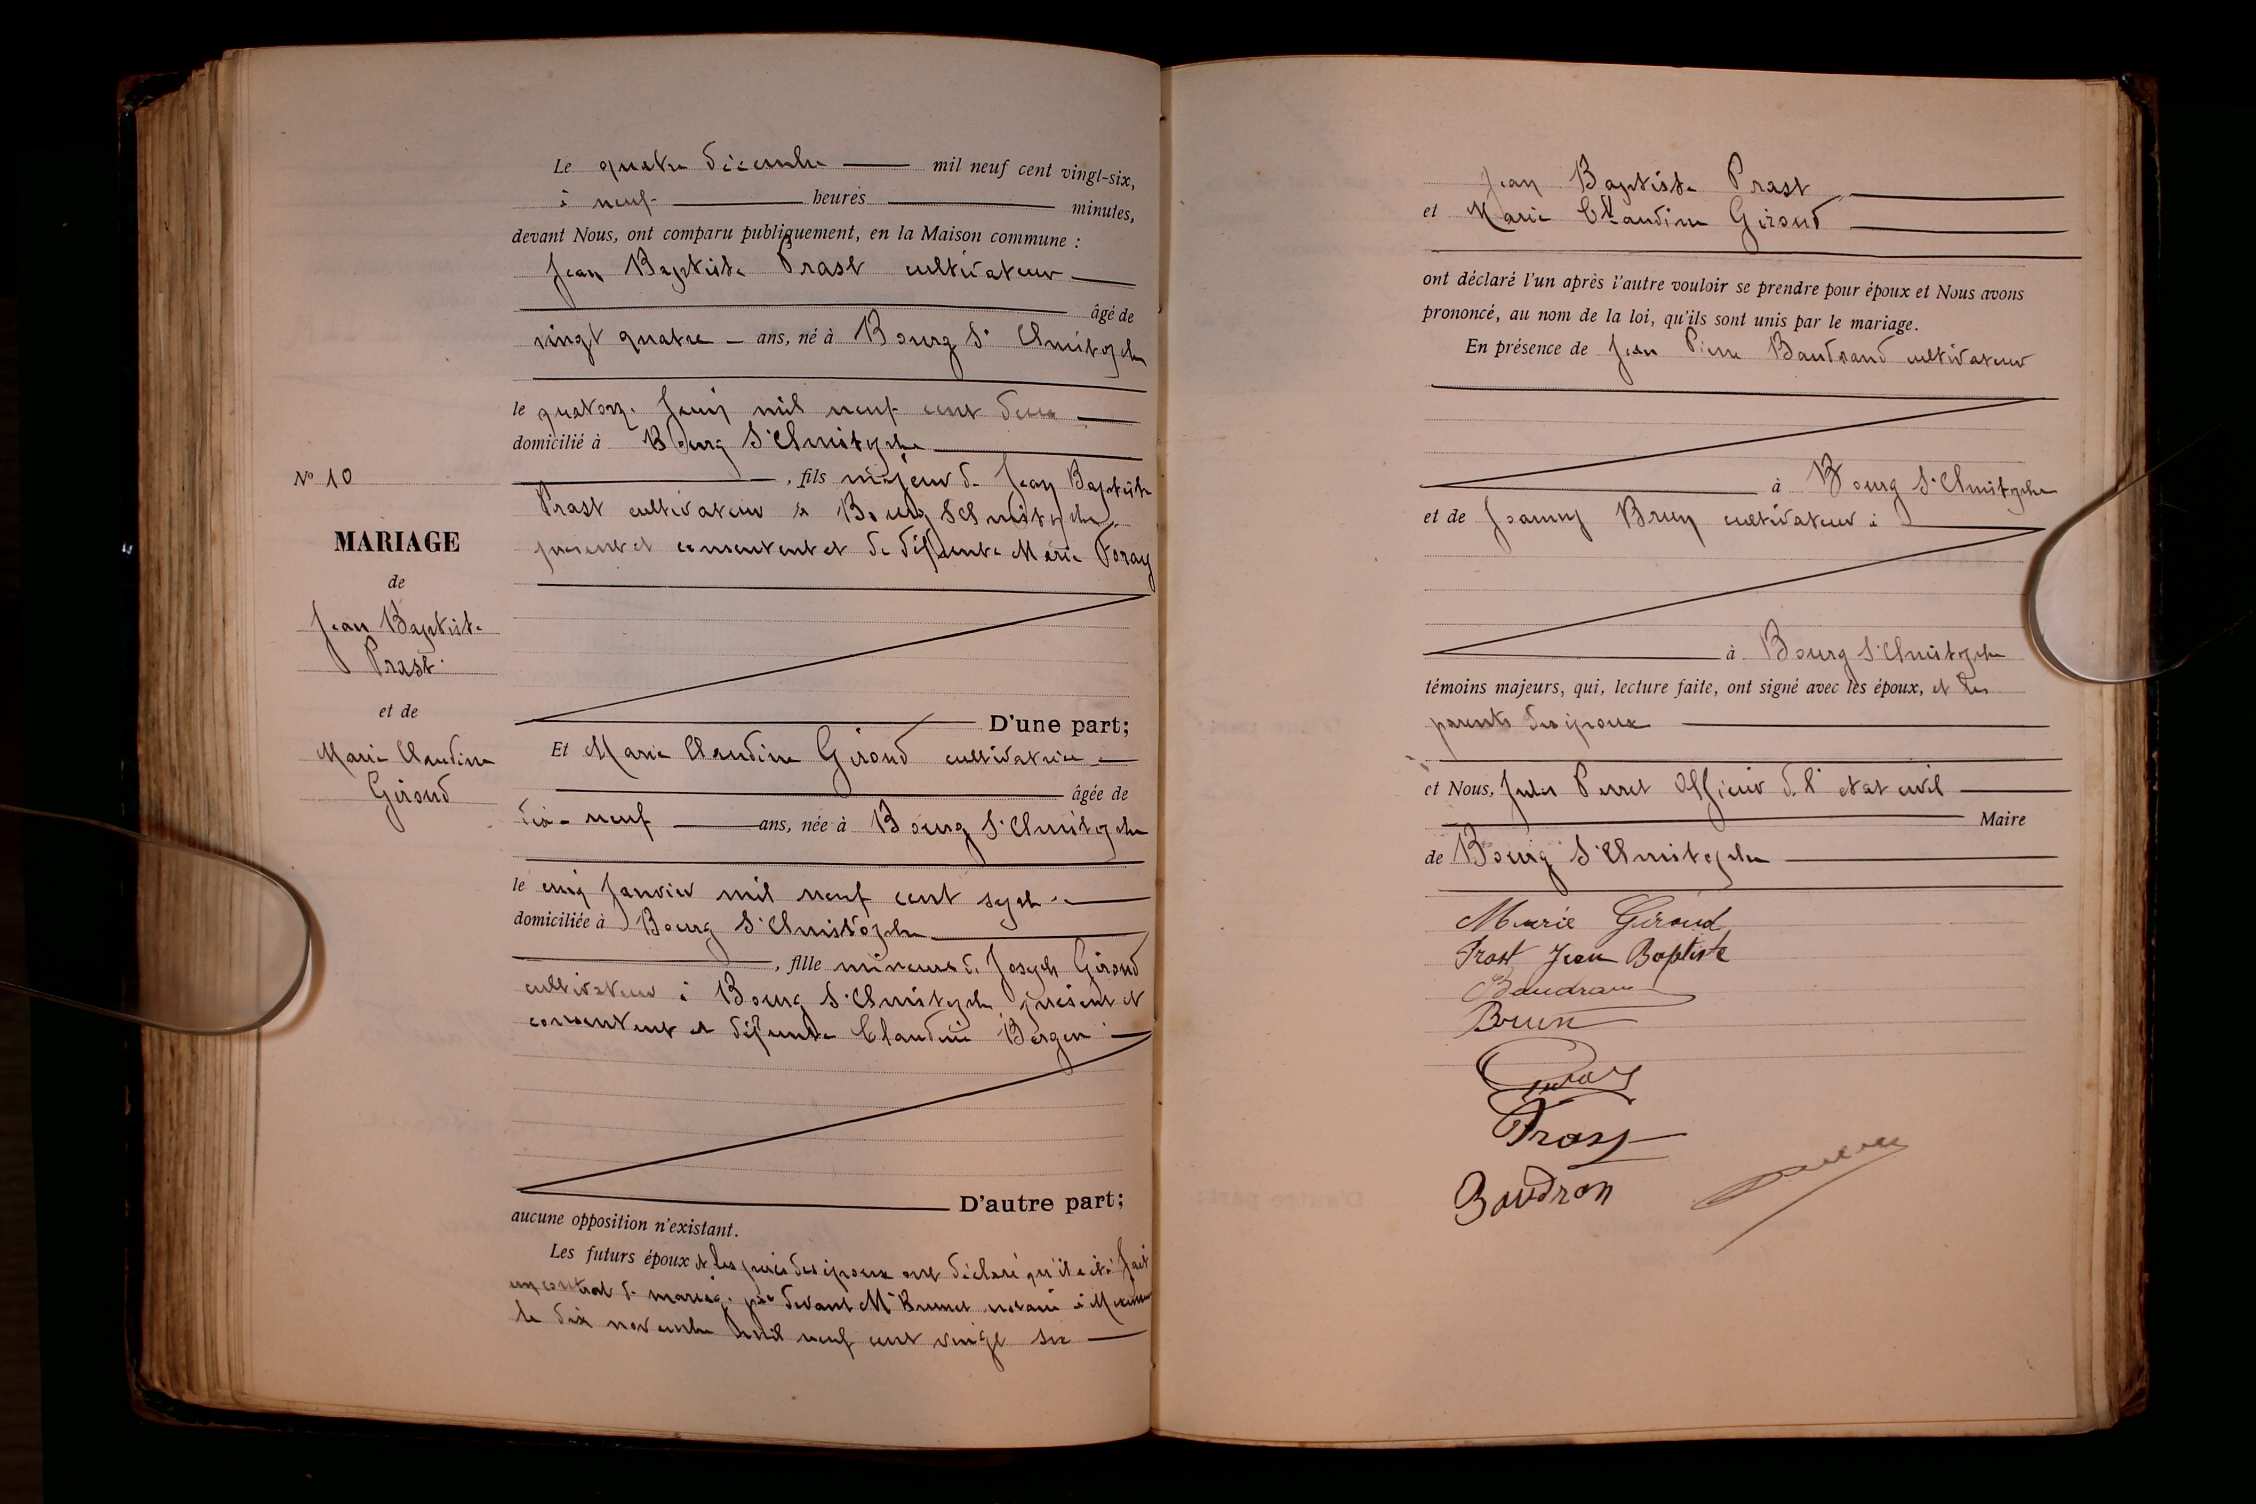 Le quatre décembre mil neuf cent vingt-six,
à neuf heures minutes,
devant Nous, ont comparu publiquement, en la Maison commune :
Jean Baptiste Prast cultivateur
âgé de
vingt quatre ans, né à Bourg St Christophe
le quatorze Juin mil neuf cent deux
domicilié à Bourg St Christophe
, fils majeur de Jean Baptiste
Prast cultivateur à Bourg St Christophe
présent et consentent et de défunte Marie
D'une part;
Et Marie Claudine Giroud cultivatrice
âgée de
dix-neuf ans, née à Bourg St Christophe
le cinq Janvier mil neuf cent sept
domiciliée à Bourg St Christophe
, fille mineure de Joseph Giroud
cultivateur à Bourg St Christophe présent et
consentent et défunte Claudine
D'autre part;
aucune opposition n'existant.
Les futurs époux et les pères des époux ont déclaré qu'il a été fait
un contrat de mariage par devant Me Brunet notaire à
le dix novembre mil neuf cent vingt six
N° 10
MARIAGE
de
Jean Baptiste
Prast
et de
Marie Claudine
Giroud
Jean Baptiste Prast
et Marie Claudine Giroud
ont déclaré l'un après l'autre vouloir se prendre pour époux et Nous avons
prononcé, au nom de la loi, qu'ils sont unis par le mariage.
En présence de Jean Pierre Baudrand cultivateur
à Bourg St Christophe
et de Joanny Brun cultivateur à
à Bourg St Christophe
témoins majeurs, qui, lecture faite, ont signé avec les époux, et les
parents des époux
et Nous, Jules Perret Officier de l'état civil
Maire
de Bourg St Christophe
Marie Giroud
Prast Jean Baptiste
Baudrand
Brun
Prast
Baudron